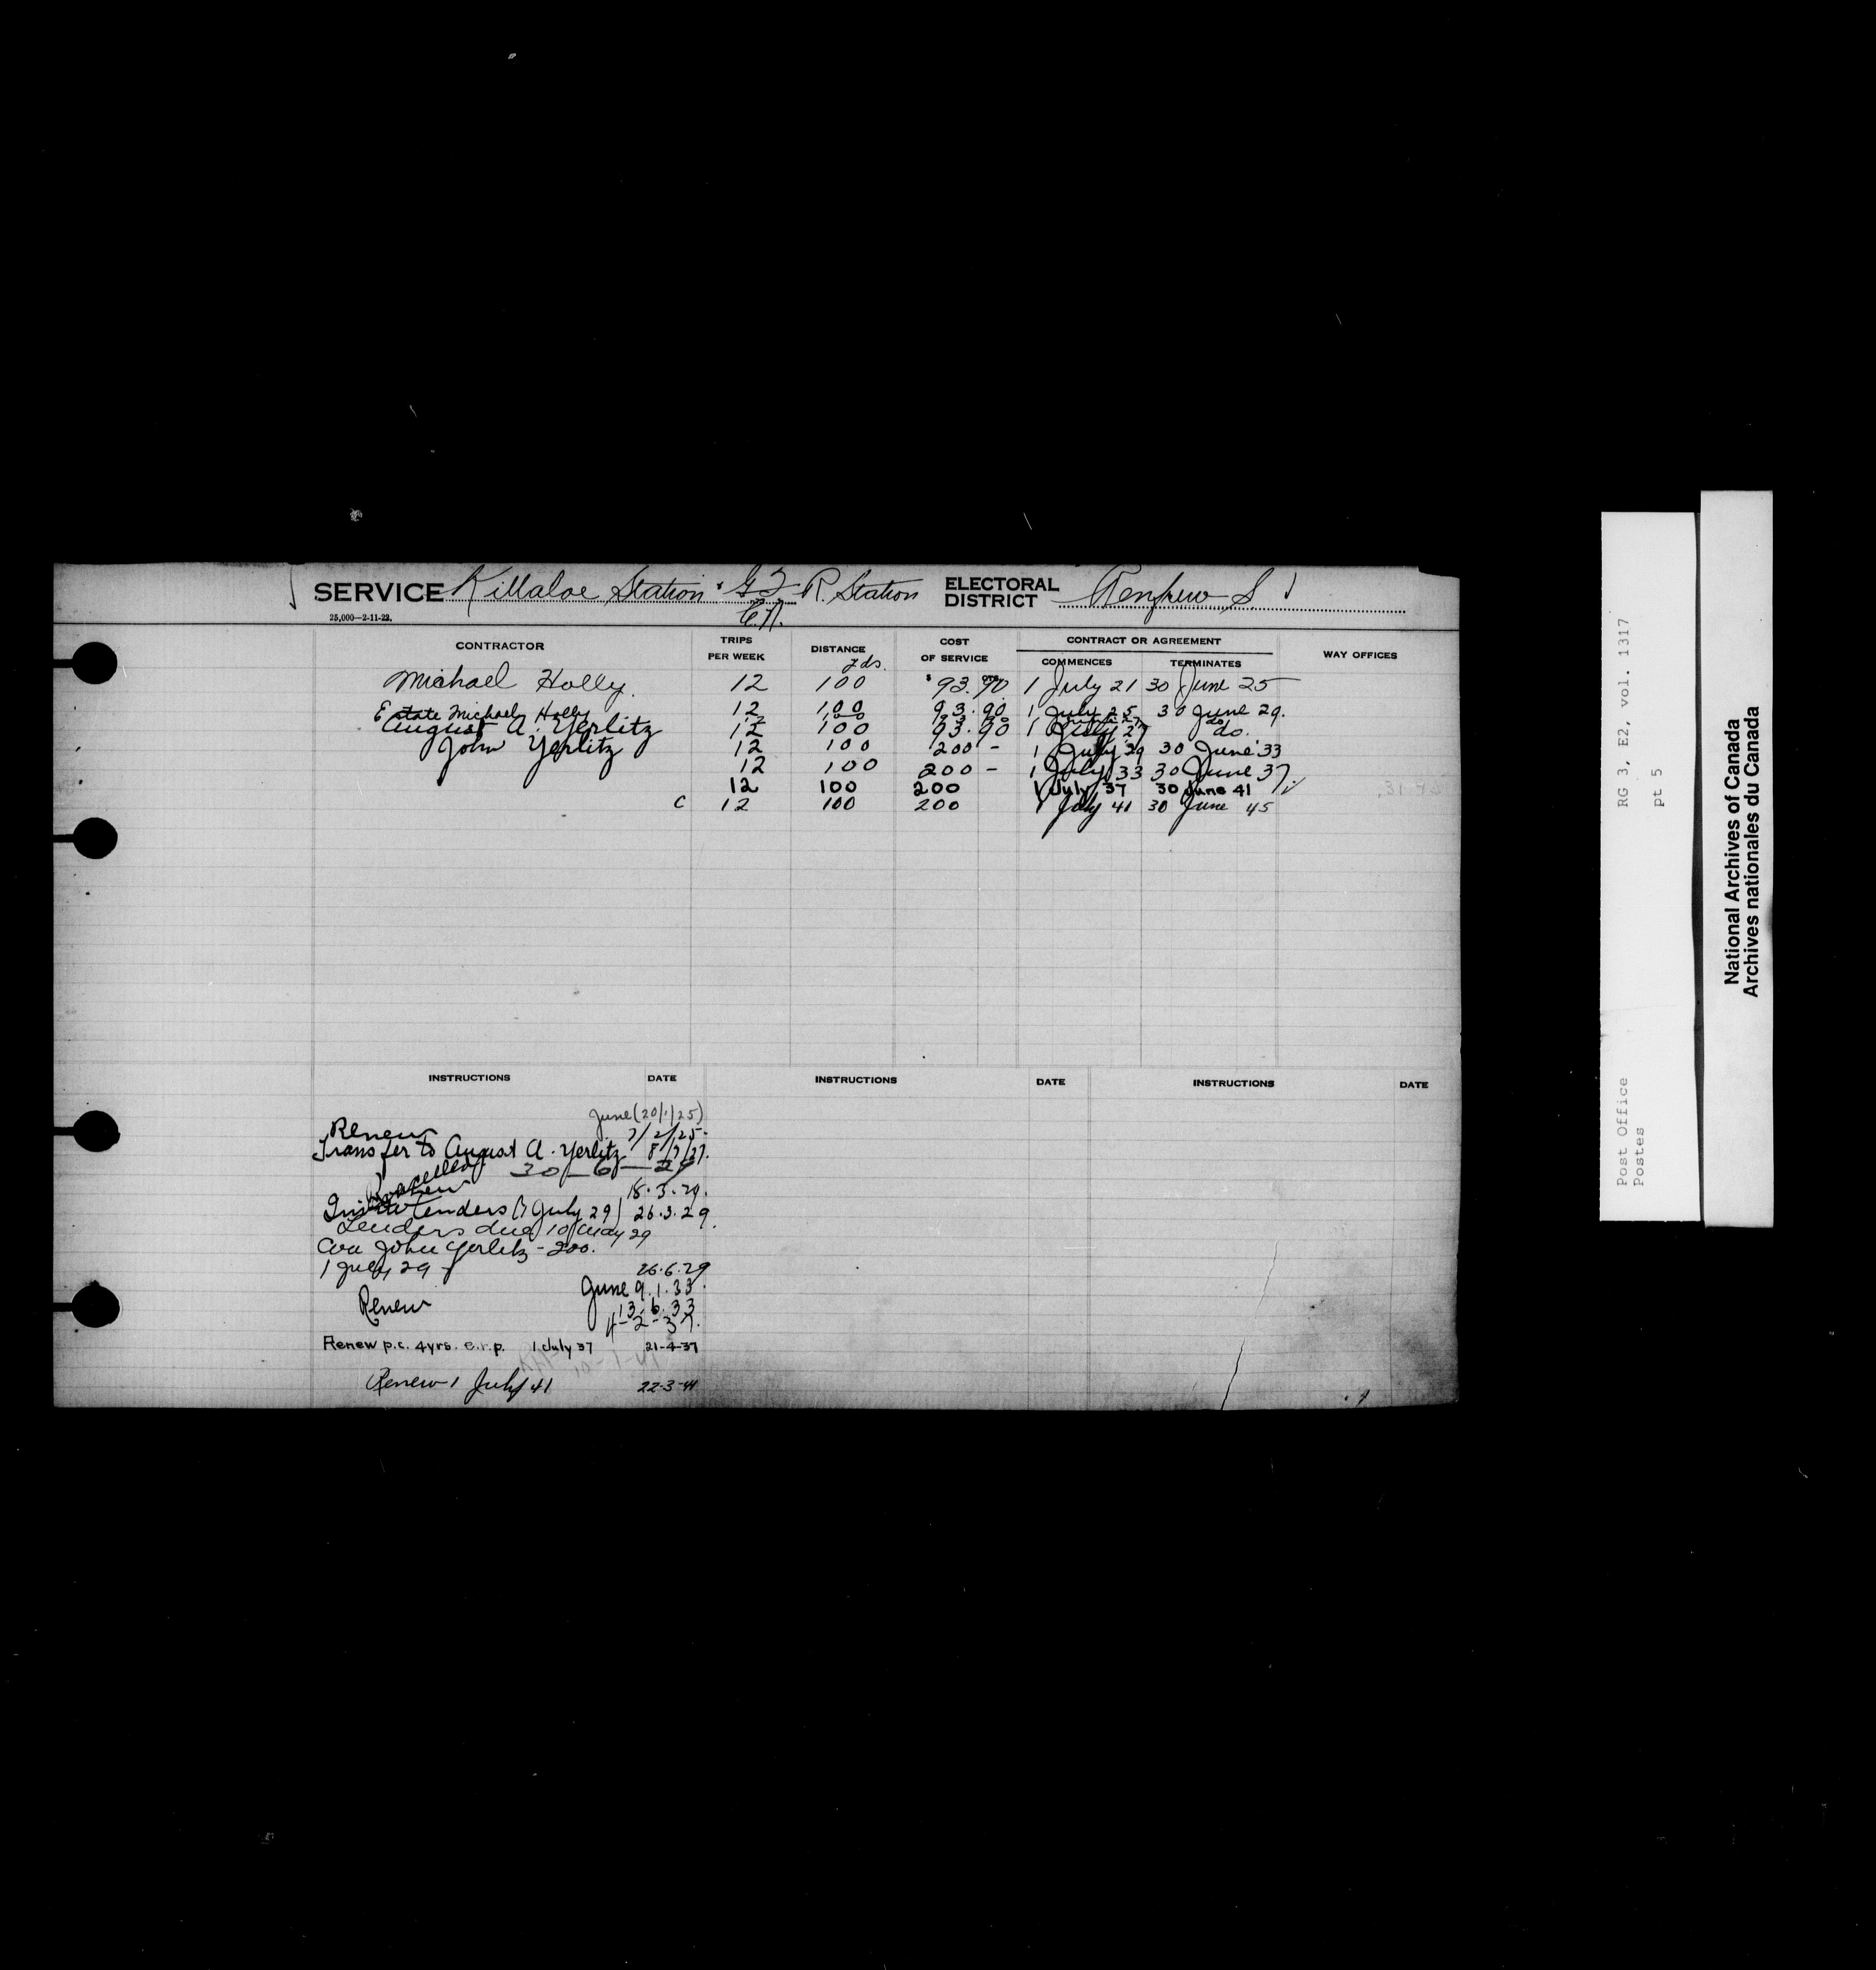 SERVICE Killaloe Station & G T R. Station ELECTORAL DISTRICT Renfrew S.
C.N.
25,000—2-11-22.
CONTRACTOR TRIPS PER WEEK DISTANCE COST OF SERVICE CONTRACT OR AGREEMENT COMMENCES TERMINATES WAY OFFICES
yds.
Michael Holly. 12 100 $ 93.90 1 July 21 30 June 25
Estate Michael Holly 12 100 93.90 1 July 25 30 June 29.
August A. Yerlitz 12 100 93.90 1 July 27 do.
John Yerlitz 12 100 200 - 1 July 29 30 June 33
12 100 200 - 1 July 33 30 June 37.
12 100 200 1 July 37 30 June 41
C 12 100 200 1 July 41 30 June 45
INSTRUCTIONS DATE INSTRUCTIONS DATE INSTRUCTIONS DATE
June (20/1/25)
Renew 7/2/25-
Transfer to August A. Yerlitz 8/7/27.
Cancelled 30-6-29
Renew 18.3.29.
Tenders (1 July 29) 26.3.29
Tenders due 10 May 29
Con John Yerlitz - 200.
1 July 29 26.6.29
June 9.1.33.
Renew 13.6.33
4-2-37.
Renew p.c. 4yrs. e.r.p. 1 July 37 21-4-37
Renew 1 July 41 22-3-41
RG 3, E2, vol. 1317
pt 5
Post Office
Postes
National Archives of Canada
Archives nationales du Canada